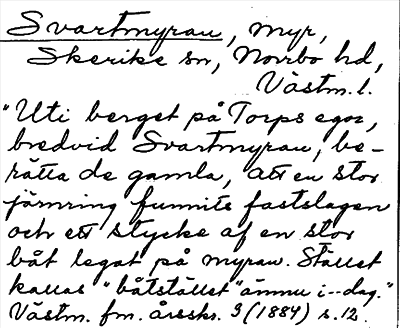 Svartmyran, myr,
Skerike sn, Norrbo hd,
Västm. l.
"Uti berget på Torps egor,
bredvid Svartmyran, be-
rätta de gamla, att en stor
järnring funnits fastslagen
och ett stycke af en stor
båt legat på myran. Stället
kallas "båtstället" ännu i--dag."
Västm. fm. årsskr. 3 (1884) s. 12.